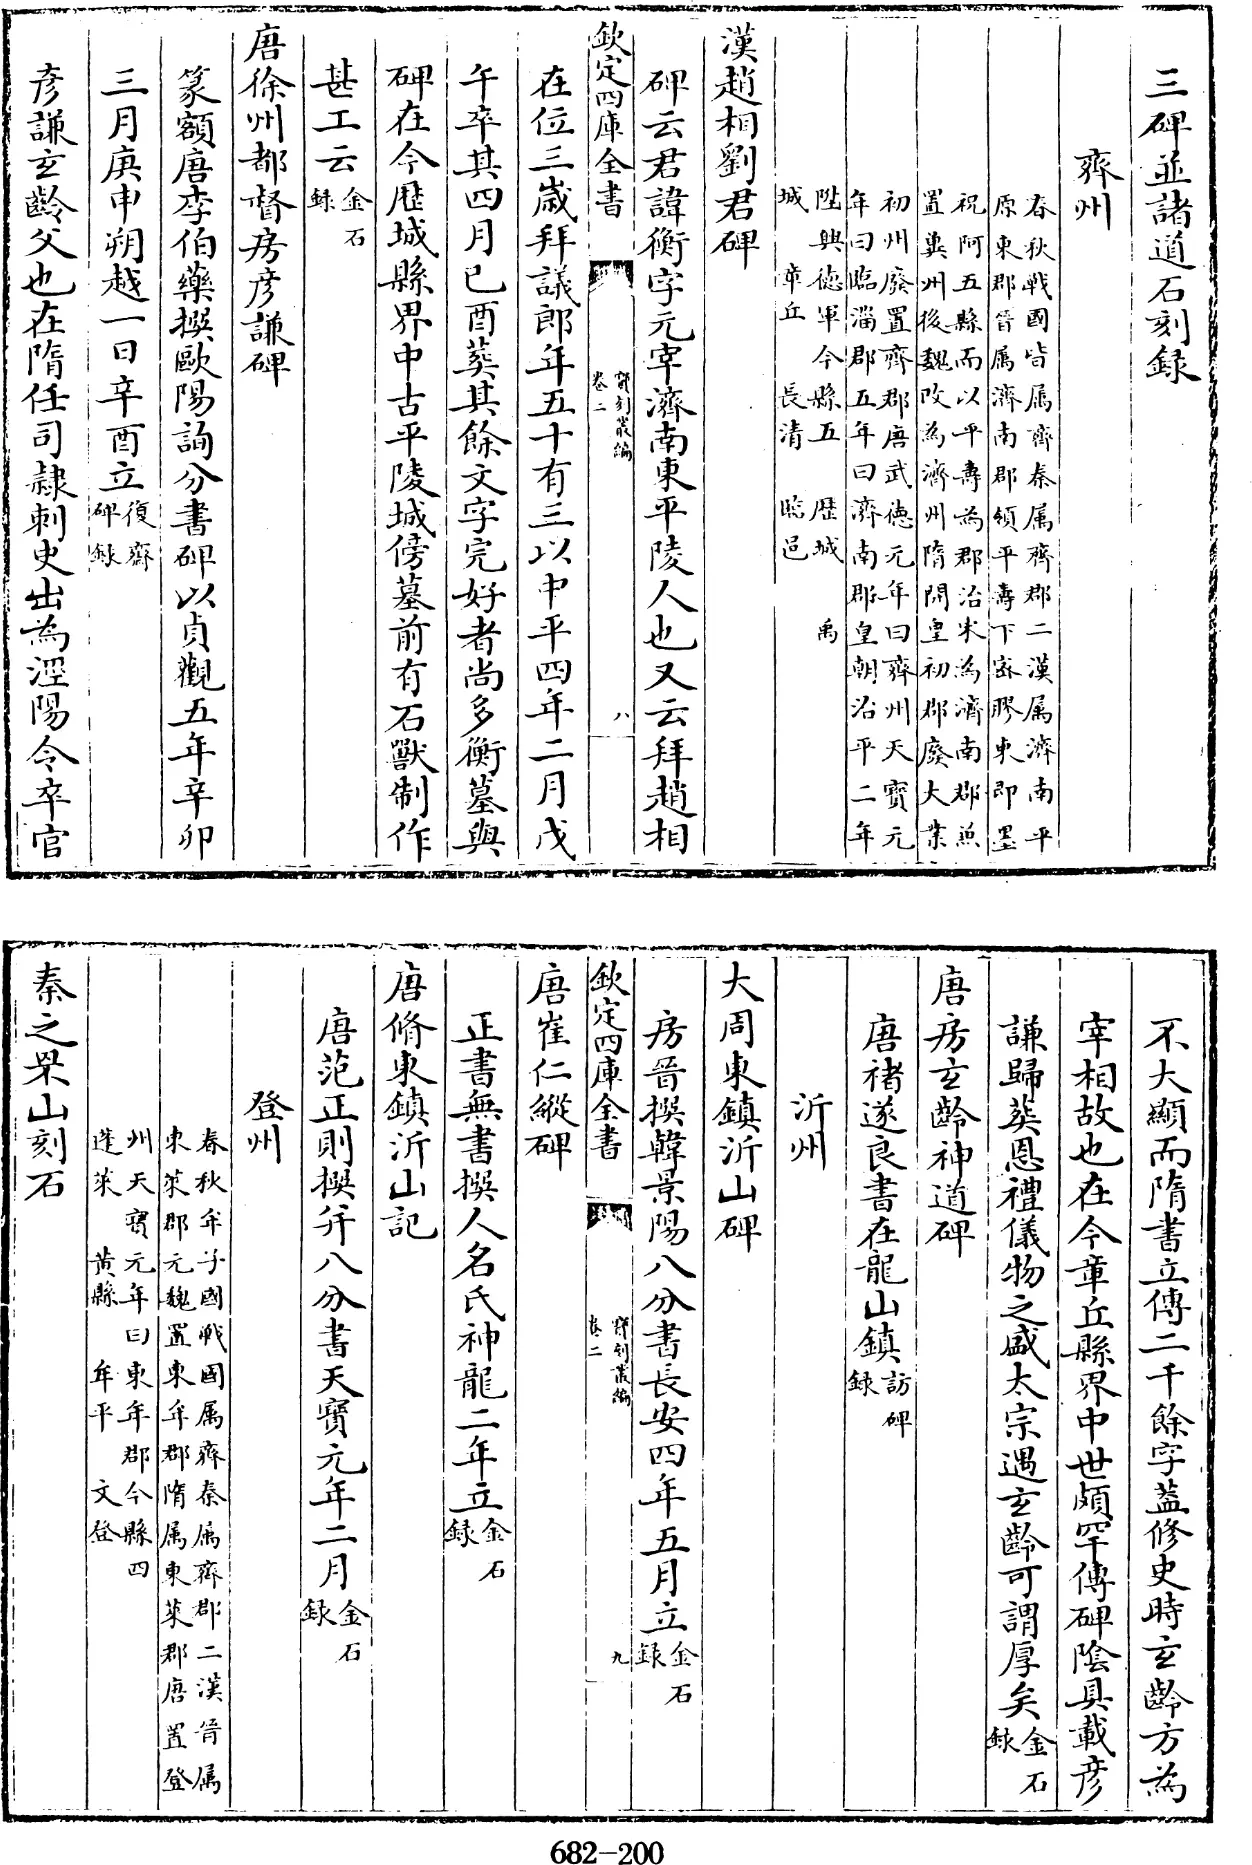 三碑並諸道石刻録
齊州
春秋戰國皆属齊秦属齊郡二漢属濟南平
原東郡晉属濟南郡領平壽下密膠東即墨
祝阿五縣而以平壽為郡治宋為濟南郡兼
置冀州後魏改為濟州隋開皇初郡廢大業
初州廢置齊郡唐武徳元年曰齊州天寳元
年曰臨淄郡五年曰濟南郡皇朝治平二年
陞興徳軍今縣五 歴城 禹
城 章丘 長清 臨邑
漢趙相劉君碑
碑云君諱衡字元宰濟南東平陵人也又云拜趙相
欽定四庫全書
寳刻叢編
卷二
八
在位三嵗拜議郎年五十有三以中平四年二月戊
午卒其四月已酉葬其餘文字完好者尚多衡墓與
碑在今歴城縣界中古平陵城傍墓前有石獸制作
甚工云金石
録
唐徐州都督房彦謙碑
篆額唐李伯藥撰歐陽詢分書碑以貞觀五年辛卯
三月庚申朔越一日辛酉立復齋
碑録
彦謙玄齡父也在隋任司隷刺史出為涇陽令卒官
不大顯而隋書立傳二千餘字葢修史時玄齡方為
宰相故也在今章丘縣界中世頗罕傳碑陰具載彦
謙歸葬恩禮儀物之盛太宗遇玄齡可謂厚矣金石
録
唐房玄齡神道碑
唐褚遂良書在龍山鎮訪碑
録
沂州
大周東鎮沂山碑
房晉撰韓景陽八分書長安四年五月立金石
録
欽定四庫全書
寳刻叢編
卷二
九
唐崔仁縱碑
正書無書撰人名氏神龍二年立金石
録
唐脩東鎮沂山記
唐范正則撰并八分書天寳元年二月金石
録
登州
春秋牟子國戰國属齊秦属齊郡二漢晉属
東萊郡元魏置東牟郡隋属東萊郡唐置登
州天寳元年曰東牟郡今縣四
蓬萊 黄縣 牟平 文登
秦之罘山刻石
682-200